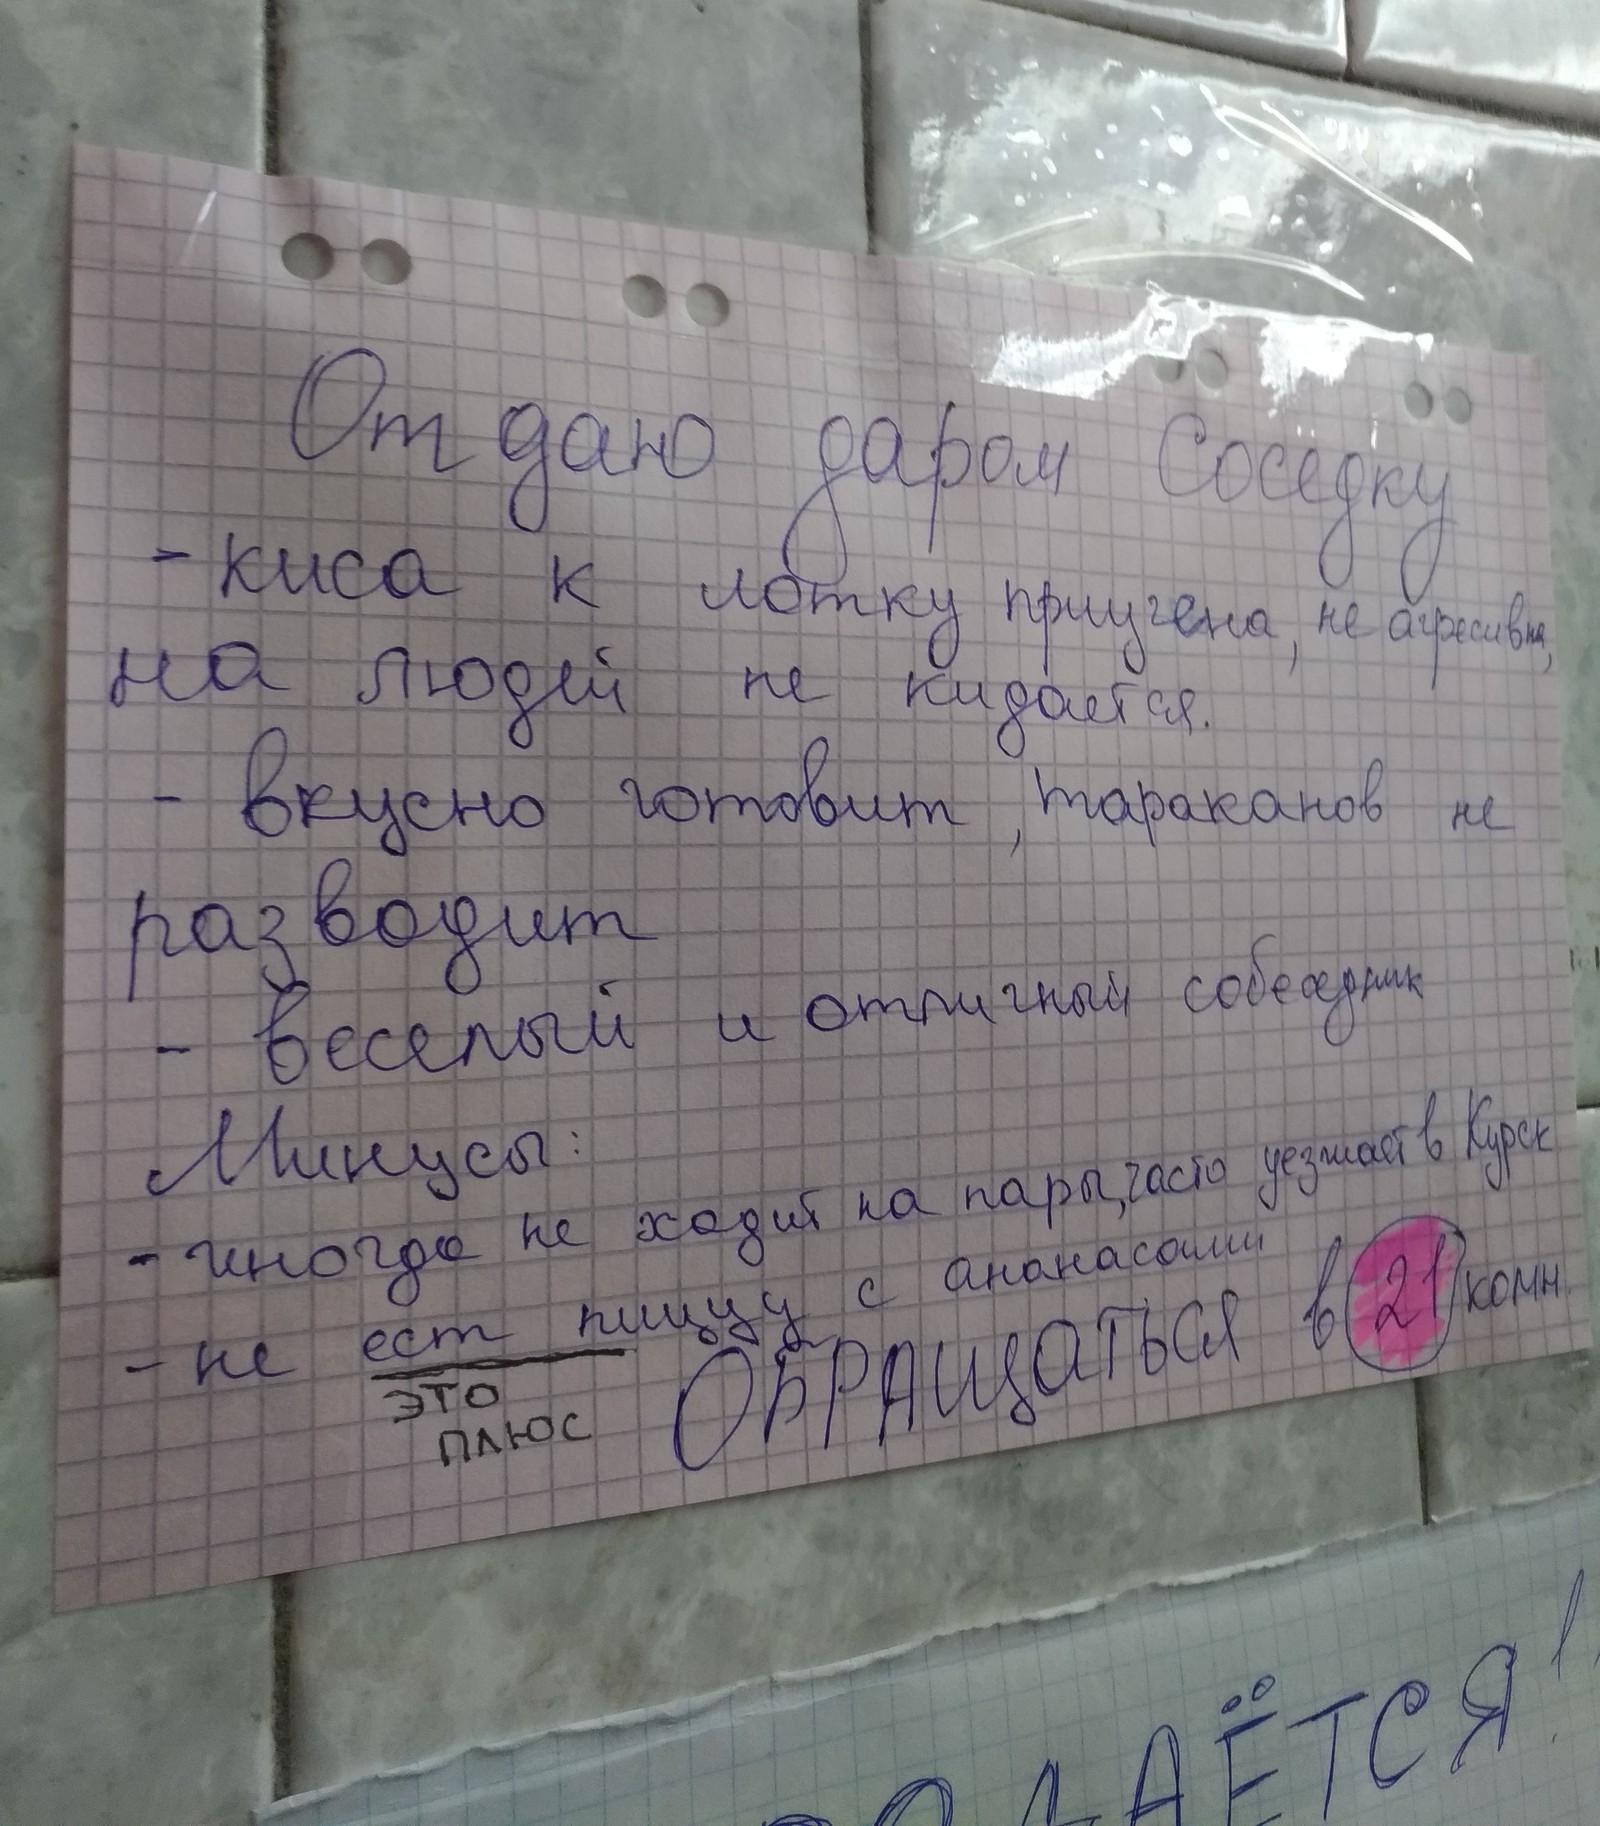 Отдаю даром Соседку
- киса к лотку приучена, не агресивна,
на людей не кидается.
- вкусно готовит, тараканов не
разводит
- веселый и отличный собеседник
Минусы:
- иногда не ходит на пары, часто уезжает в Курск
- не ест пиццу с ананасами
ЭТО
ПЛЮС
ОБРАЩАТЬСЯ в 21 комн.
ОДАЁТСЯ!